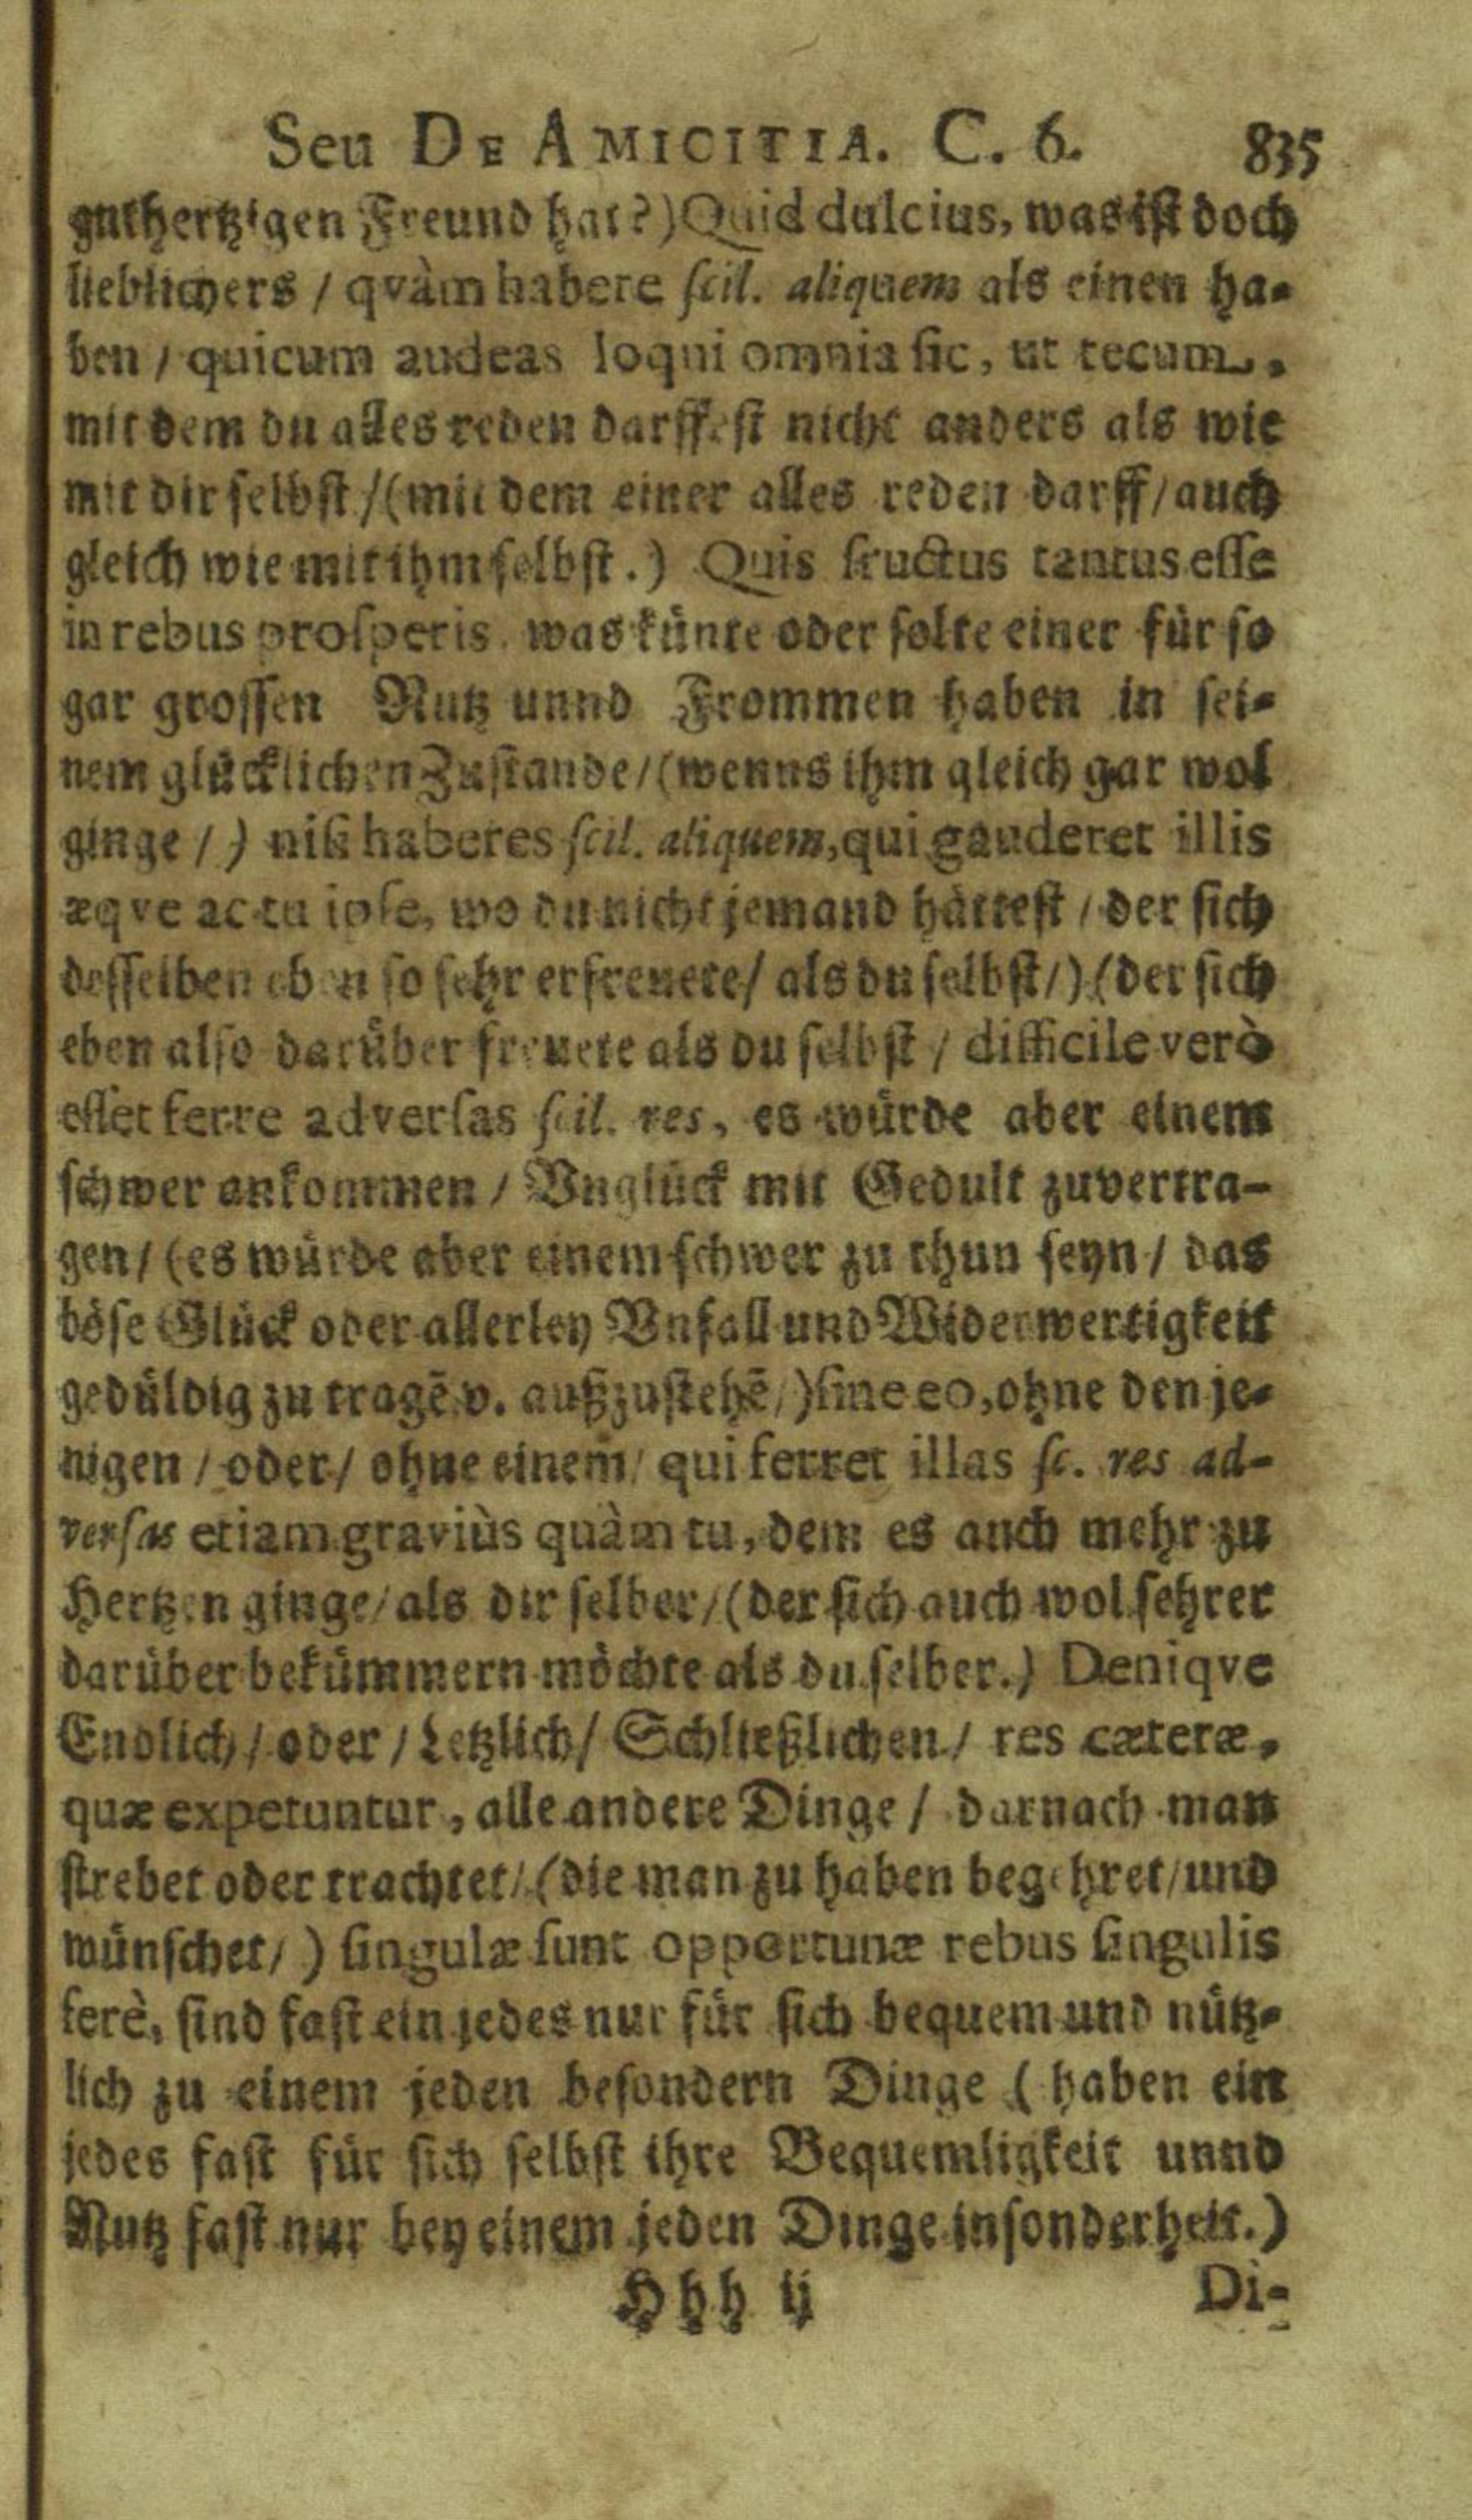 Seu DE AMICITIA. C. 6. 835
guthertzigen Freund hat?) Quid dulcius, was ist doch
lieblichers / qvàm habere scil. aliquem als einen ha-
ben / quicum audeas loqui omnia sic, ut tecum,
mit dem du alles reden darffest nicht anders als wie
mit dir selbst / (mit dem einer alles reden darff / auch
gleich wie mit ihm selbst.) Quis fructus tantus esse
in rebus prosperis, was künte oder solte einer für so
gar grossen Nutz unnd Frommen haben in sei-
nem glücklichen Zustande / (wenns ihm gleich gar wol
ginge /) nisi haberes scil. aliquem, qui gauderet illis
æqve ac tu ipse, wo du nicht jemand hättest / der sich
desselben eben so sehr erfreuete / als du selbst /) (der sich
eben also darüber freuete als du selbst / difficile verò
esset ferre adversas scil. res, es würde aber einem
schwer ankommen / Vnglück mit Gedult zuvertra-
gen / (es würde aber einem schwer zu thun seyn / das
böse Glück oder allerley Vnfall und Widerwertigkeit
gedüldig zu tragē v. außzustehē /) sine eo, ohne den je-
nigen / oder / ohne einem / qui ferret illas sc. res ad-
versas etiam graviùs quàm tu, dem es auch mehr zu
Hertzen ginge / als dir selber / (der sich auch wol sehrer
darüber bekümmern möchte als du selber.) Deniqve
Endlich / oder / Letzlich / Schließlichen / res cæteræ,
quæ expetuntur, alle andere Dinge / darnach man
strebet oder trachtet / (die man zu haben begehret / und
wünschet /) singulæ sunt opportunæ rebus singulis
ferè, sind fast ein jedes nur für sich bequem und nütz-
lich zu einem jeden besondern Dinge (haben ein
jedes fast für sich selbst ihre Bequemligkeit unnd
Nutz fast nur bey einem jeden Dinge insonderheit.)
Hhh ij Di-